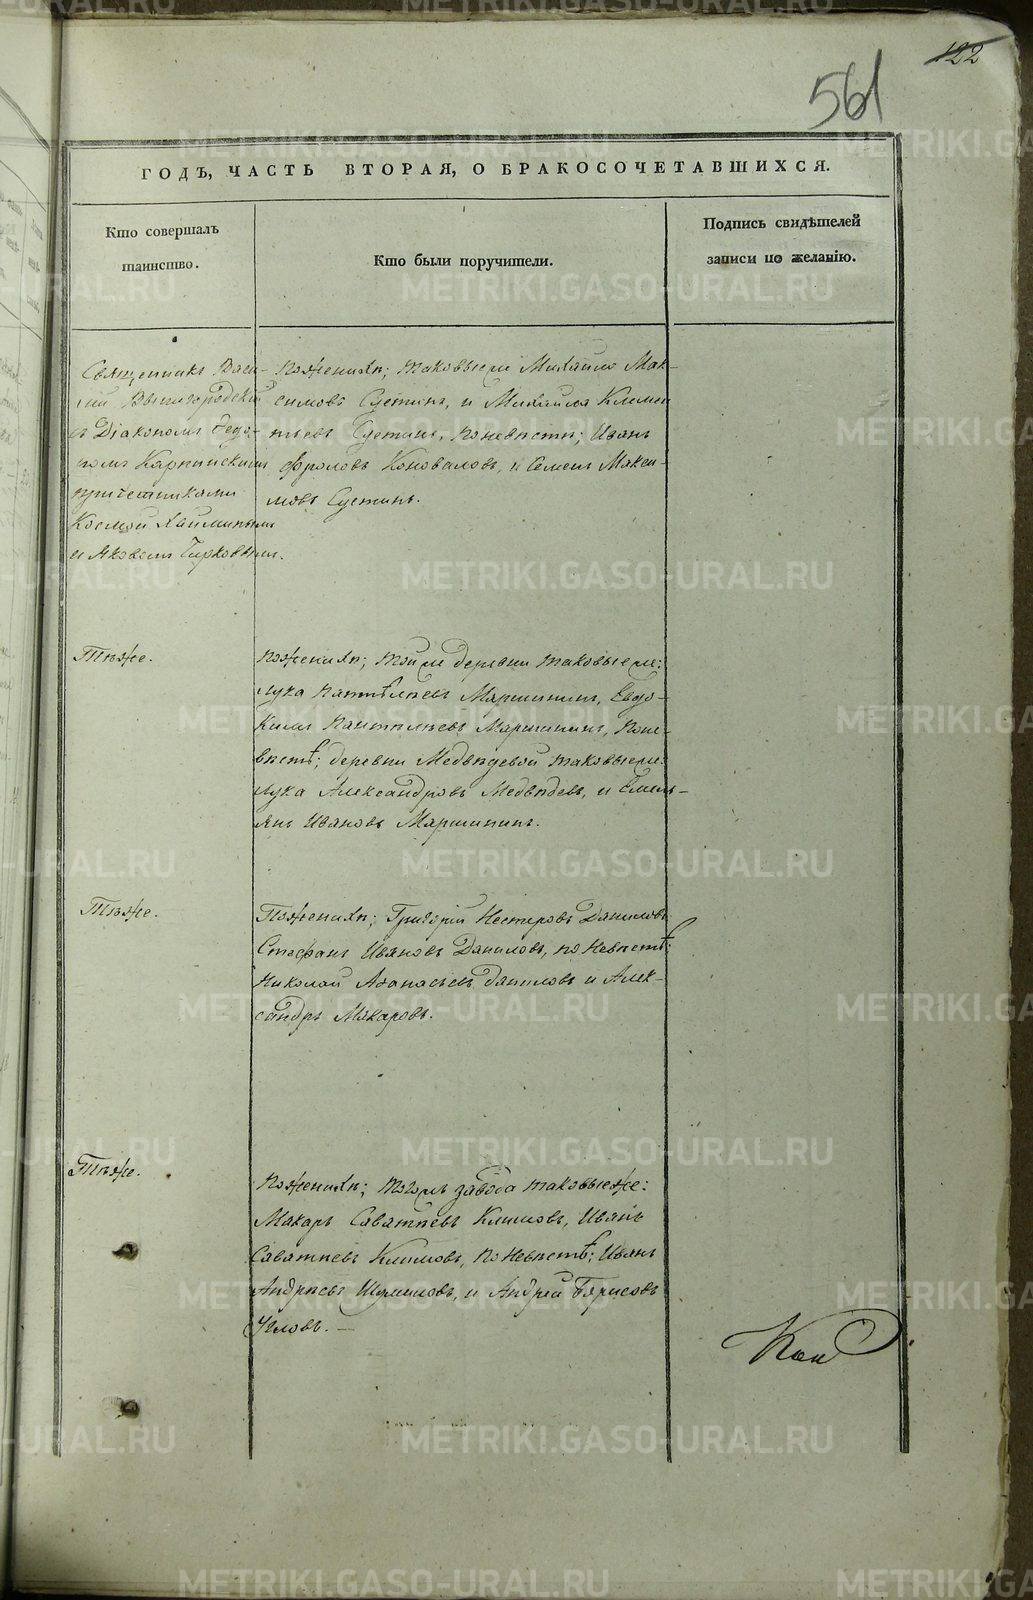 122
561
ГОДЪ, ЧАСТЬ ВТОРАЯ, О БРАКОСОЧЕТАВШИХСЯ.
Кто совершалъ
таинство.
Кто были поручители.
Подпись свидѣтелей
записи по желанію.
Священникъ Васи-
лій Вышгородскій
съ Діакономъ Ѳедо-
ромъ Карпинскимъ
причетниками
Космой Ляминымъ
и Яковомъ Чирковымъ.
По женихѣ; таковыеже Михайло Мак-
симовъ Суетинъ, и Михайла Клемен
тьевъ Суетинъ, по невѣстѣ; Иванъ
Фроловъ Коноваловъ, и Семенъ Макси-
мовъ Суетинъ.
Тѣже.
По женихѣ; тойже деревни таковыеже:
Лука Пантѣлѣевъ Маршининъ, Евдо-
кимъ Пантелѣевъ Маршининъ, по не-
вѣстѣ; деревни Медвѣдевой таковыеже:
Лука Александровъ Медвѣдевъ, и Емель-
янъ Ивановъ Маршининъ.
Тѣже.
По женихѣ; Григорій Нестеровъ Даниловъ
Стефанъ Ивановъ Даниловъ, по невѣстѣ;
Николай Аѳанасьевъ Даниловъ и Алек-
сандръ Макаровъ.
Тѣже.
По женихѣ; тогожъ завода таковыеже:
Макаръ Саватѣевъ Климовъ, Иванъ
Саватѣевъ Климовъ, по невѣстѣ; Иванъ
Андрѣевъ Шумиловъ, и Андрей Борисовъ
Угловъ. —
METRIKI.GASO-URAL.RU